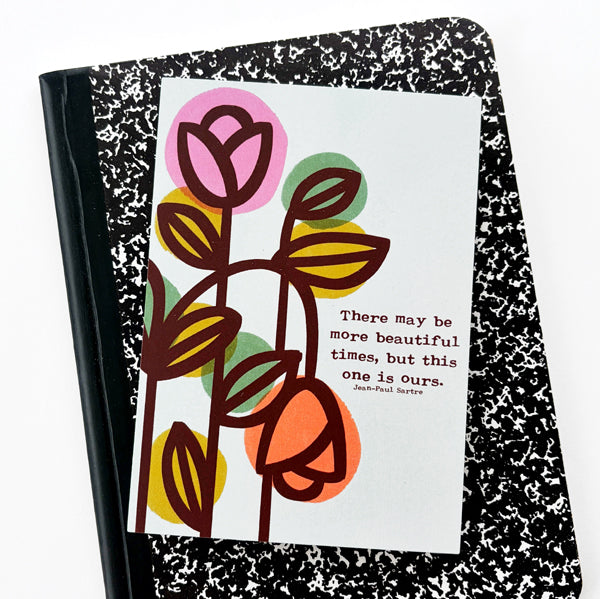 There may be
more beautiful
times, but this
one is ours.
Jean-Paul Sartre